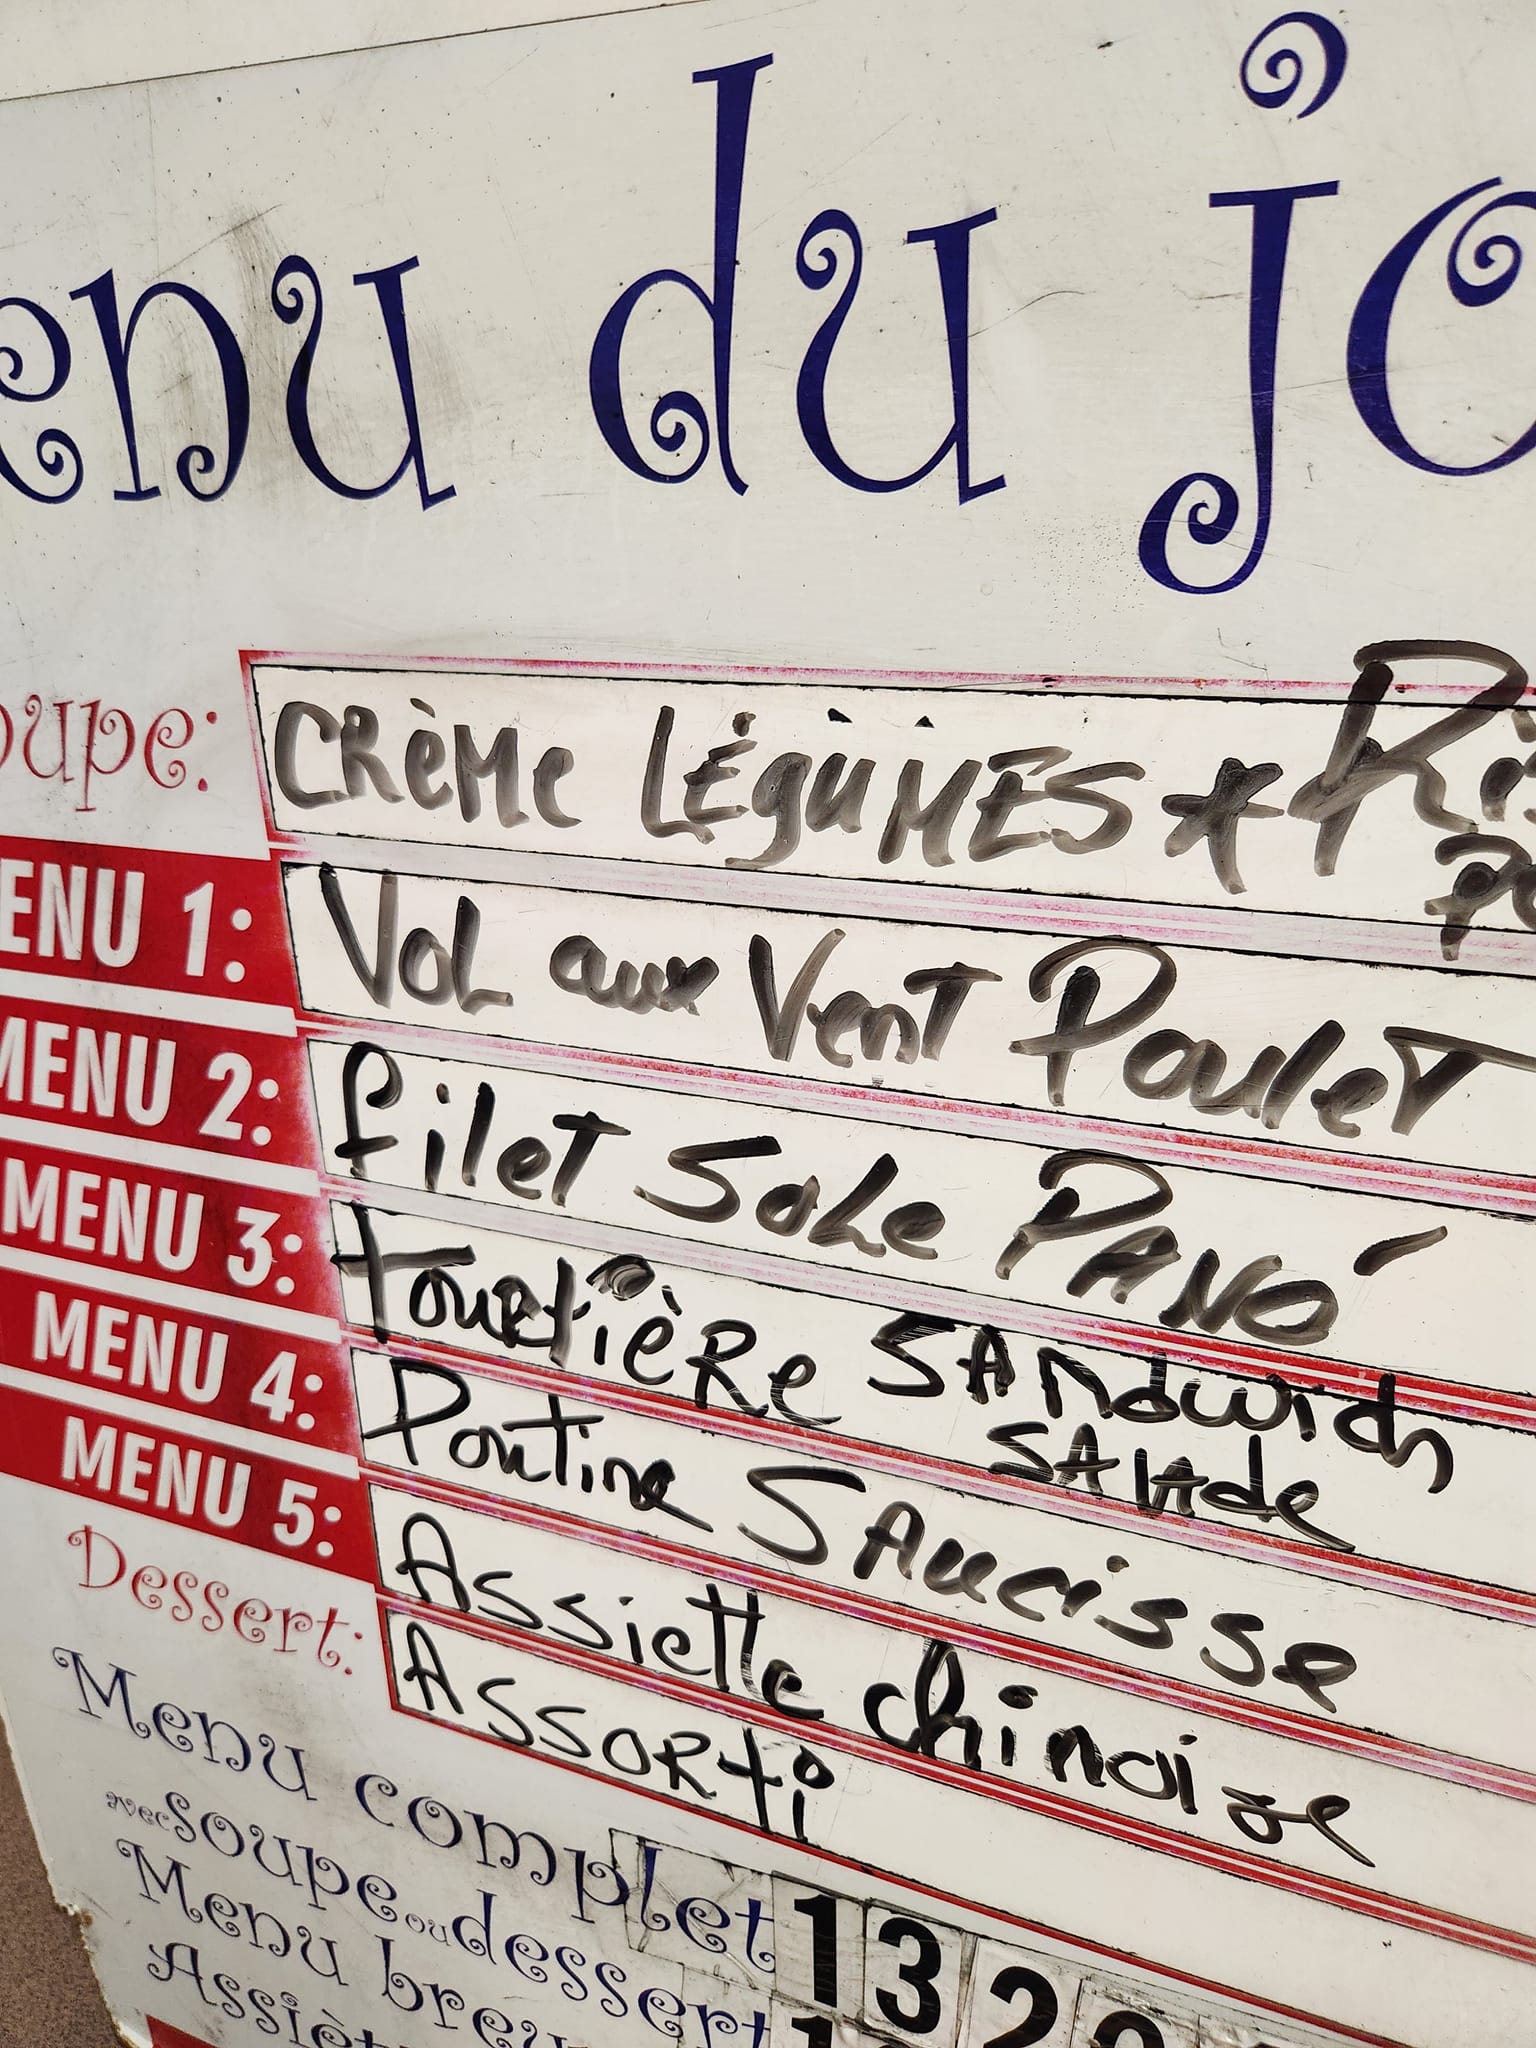 enu du jo
oupe: CRèMe LÉgùMES *
ENU 1: VOL aux Vent PouleT
MENU 2: filet SoLe PANÓ
MENU 3: Tourtière SANdwich
SALAde
MENU 4: Poutine SAucisse
MENU 5: Assiette chinoise
Dessert: ASSORTi
Menu complet 13
avec soupe ou dessert
Menu breu
Assièt